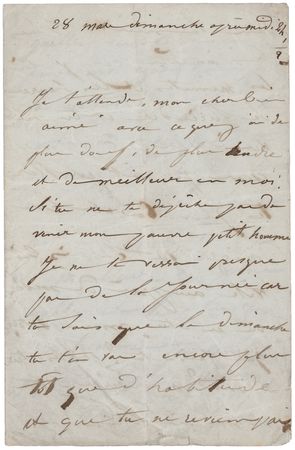 28 mars dimanche après midi 2h 1/2
Je t'attends, mon cher bien
aimé avec ce que j'ai de
plus doux, de plus tendre
et de meilleur en moi.
Si tu ne te dépêche pas de
venir mon pauvre petit homme
Je ne te verrai presque
pas de la journée car
tu sais que le dimanche
tu t'en vas encore plus
tôt que d'habitude
et que tu ne reviens pas